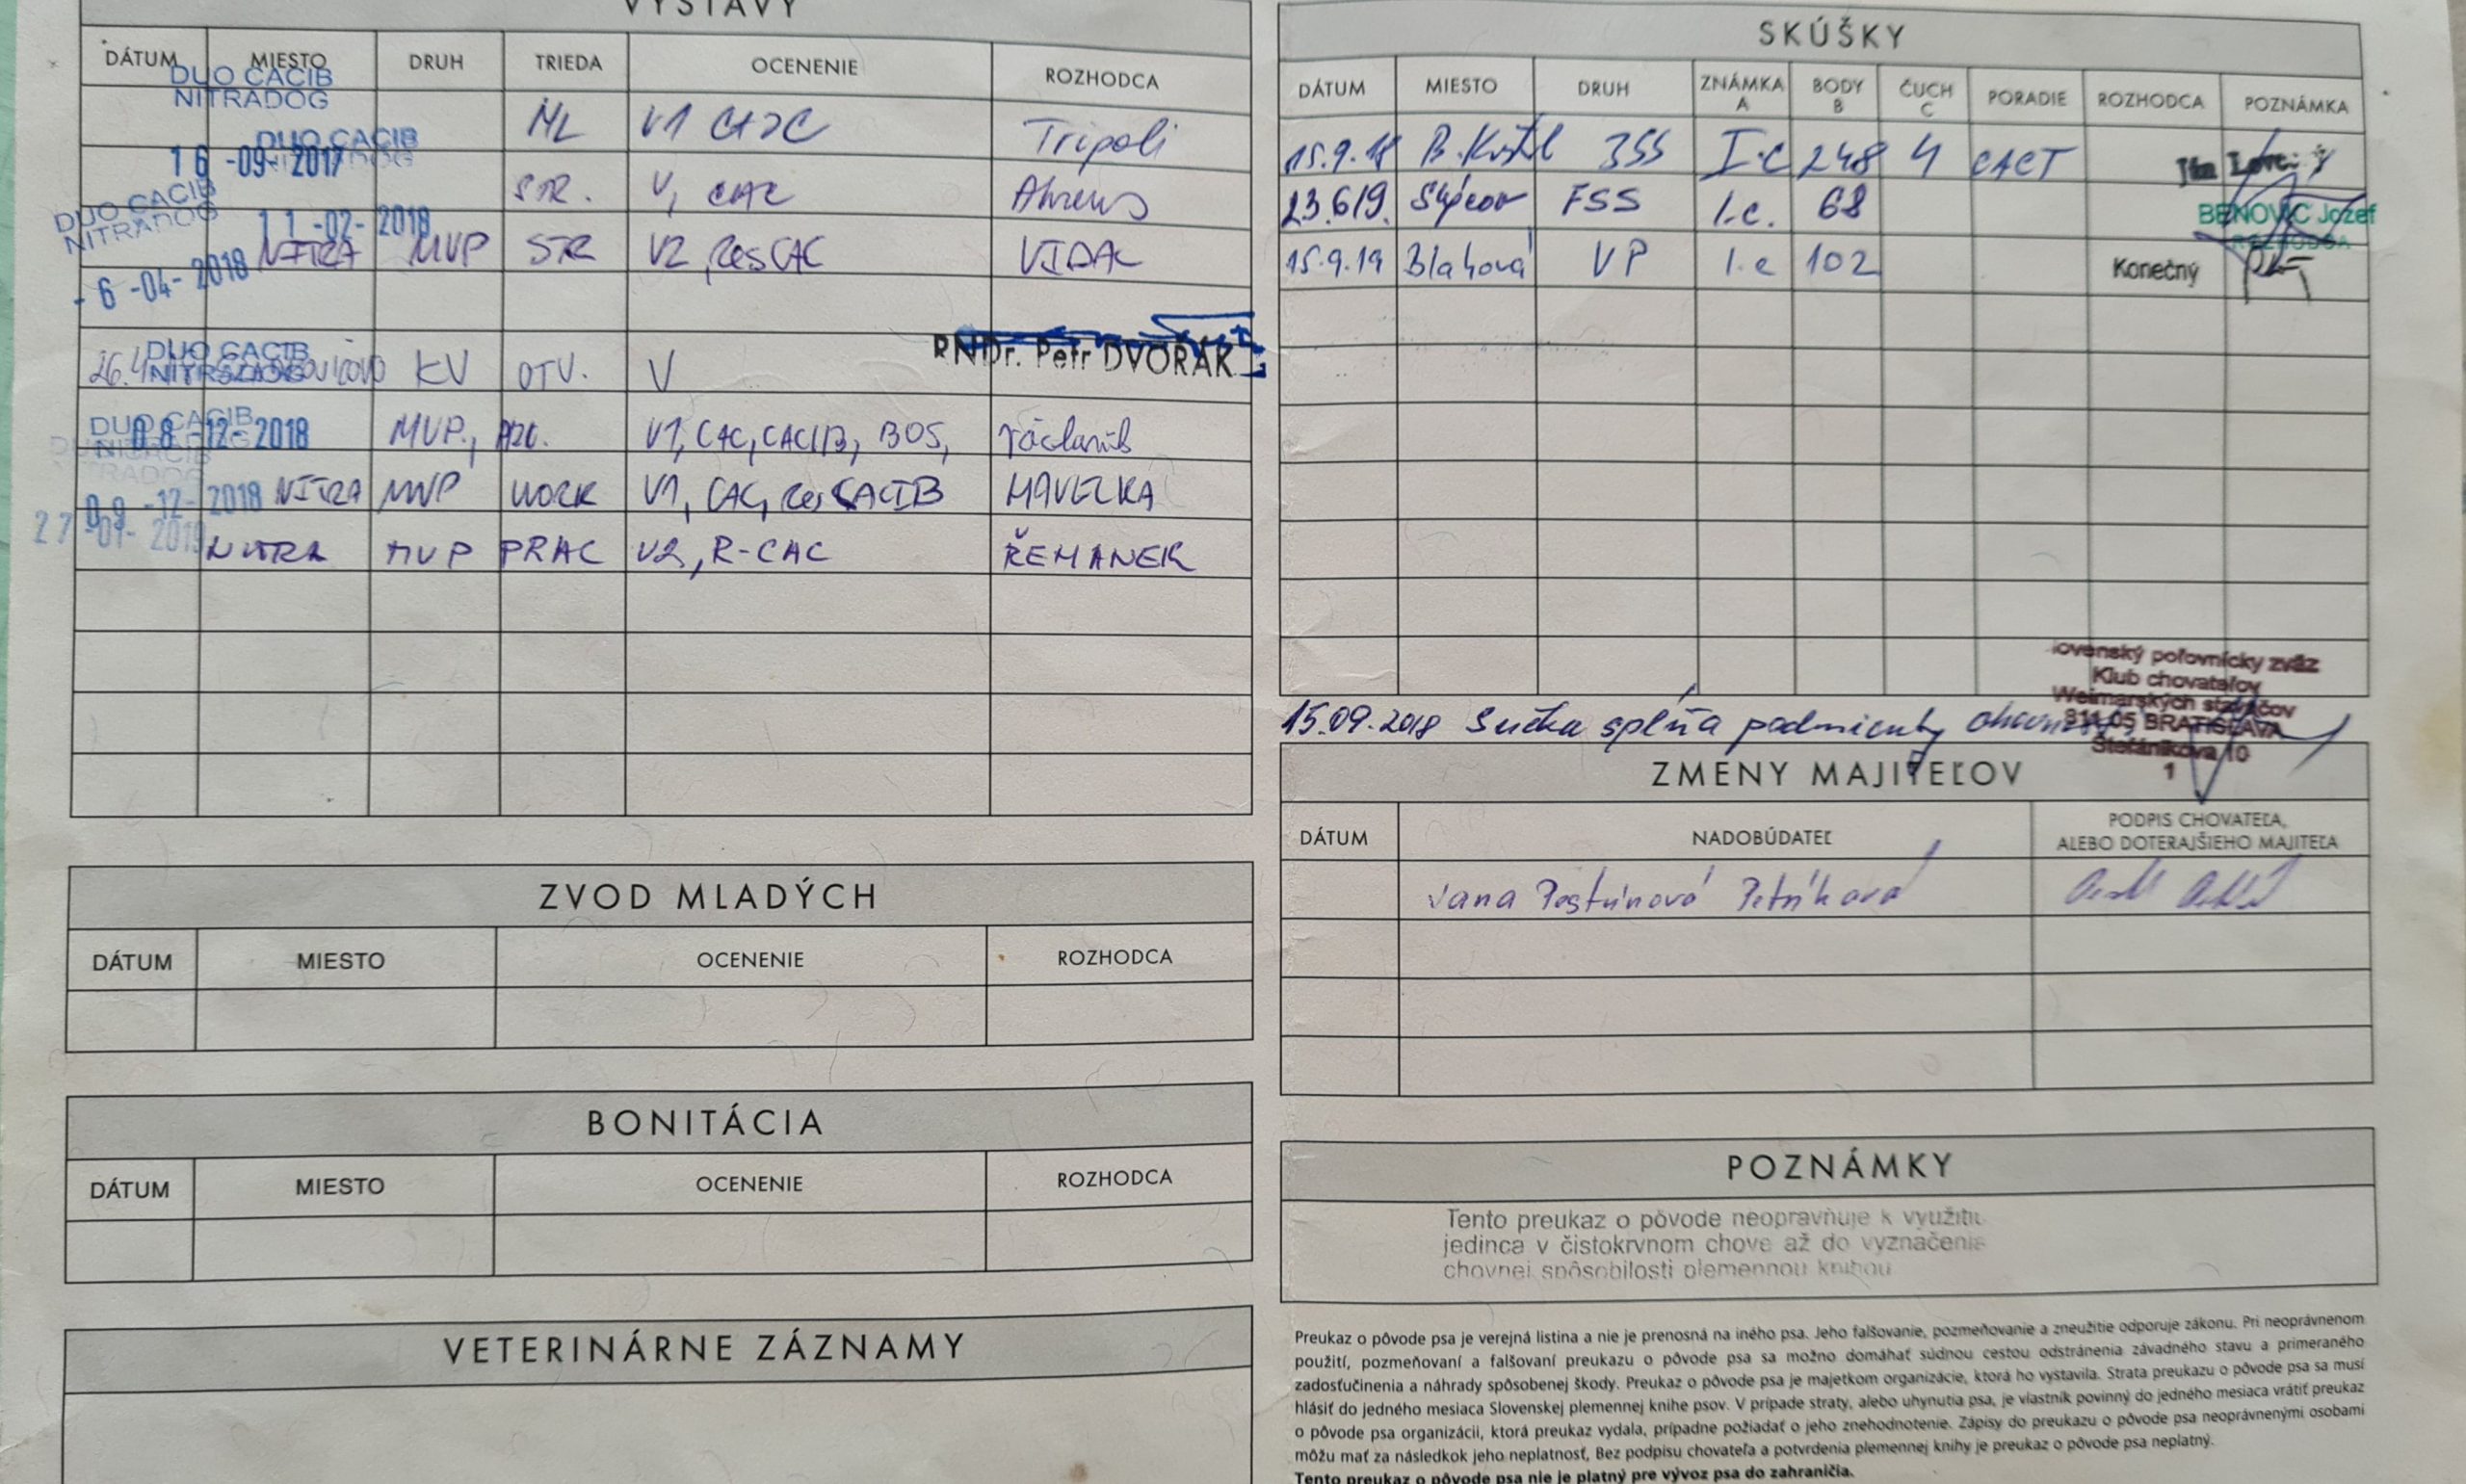 VÝSTAVY
DÁTUM MIESTO DRUH TRIEDA OCENENIE ROZHODCA
DUO CACIB
NITRADOG
ML V1 CAJC Tripoli
DUO CACIB
NITRADOG
16 -09- 2017
STR. V1 CAC Ahrens
DUO CACIB
NITRADOG
11 -02- 2018
NITRA MVP STR V2, ResCAC VIDAC
- 6 -04- 2018
RNDr. Petr DVOŘÁK
DUO CACIB
NITRADOG
26.4 KV OTV. V
DUO CACIB
08 -12- 2018 MVP, V1, CAC, CACIB, BOS,
DUO CACIB
NITRADOG
09 -12- 2018 NITRA MVP WORK V1, CAC, Res CACIB
27 -01- 2019 NITRA MVP PRAC V2, R-CAC ŘEMANEK
ZVOD MLADÝCH
DÁTUM MIESTO OCENENIE ROZHODCA
BONITÁCIA
DÁTUM MIESTO OCENENIE ROZHODCA
VETERINÁRNE ZÁZNAMY
SKÚŠKY
DÁTUM MIESTO DRUH ZNÁMKA A BODY B ČUCH C PORADIE ROZHODCA POZNÁMKA
15.9.18 I.c 248 4 CACT
23.6.19. FSS I.c. 68 BENOVIČ Jozef
ROZHODCA
15.9.19 Blahová VP I.c 102 Konečný
Slovenský poľovnícky zväz
Klub chovateľov
Weimarských stavačov
811 05 BRATISLAVA
Štefánikova 10
1
15.09.2018 Sučka spĺňa podmienky chovnosti
ZMENY MAJITEĽOV
DÁTUM NADOBÚDATEĽ PODPIS CHOVATEĽA,
ALEBO DOTERAJŠIEHO MAJITEĽA
Jana Petríková
POZNÁMKY
Tento preukaz o pôvode neopravňuje k využitiu
jedinca v čistokrvnom chove až do vyznačenia
chovnej spôsobilosti plemennou knihou
Preukaz o pôvode psa je verejná listina a nie je prenosná na iného psa. Jeho falšovanie, pozmeňovanie a zneužitie odporuje zákonu. Pri neoprávnenom
použití, pozmeňovaní a falšovaní preukazu o pôvode psa sa možno domáhať súdnou cestou odstránenia závadného stavu a primeraného
zadosťučinenia a náhrady spôsobenej škody. Preukaz o pôvode psa je majetkom organizácie, ktorá ho vystavila. Strata preukazu o pôvode psa sa musí
hlásiť do jedného mesiaca Slovenskej plemennej knihe psov. V prípade straty, alebo uhynutia psa, je vlastník povinný do jedného mesiaca vrátiť preukaz
o pôvode psa organizácii, ktorá preukaz vydala, prípadne požiadať o jeho znehodnotenie. Zápisy do preukazu o pôvode psa neoprávnenými osobami
môžu mať za následkok jeho neplatnosť, Bez podpisu chovateľa a potvrdenia plemennej knihy je preukaz o pôvode psa neplatný.
Tento preukaz o pôvode psa nie je platný pre vývoz psa do zahraničia.